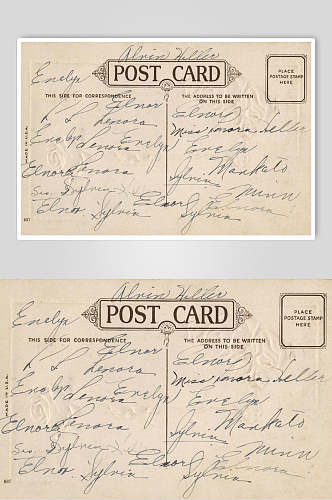 Alvin Heller
POST CARD
THIS SIDE FOR CORRESPONDENCE
THE ADDRESS TO BE WRITTEN
ON THIS SIDE
PLACE
POSTAGE STAMP
HERE
MADE IN U.S.A.
Evelyn
Elnor
Lenora
Evelyn
Lenora Evelyn
Elnor Lenora
Sylvia
Elnor Sylvia
Elnor
Elnor
Miss Lenora Heller
Evelyn
Mankato
Sylvia
Minn
Lenora
Sylvia
Alvin Heller
POST CARD
THIS SIDE FOR CORRESPONDENCE
THE ADDRESS TO BE WRITTEN
ON THIS SIDE
PLACE
POSTAGE STAMP
HERE
MADE IN U.S.A.
Evelyn
Elnor
Lenora
Evelyn
Lenora Evelyn
Elnor Lenora
Sylvia
Elnor Sylvia
Elnor
Elnor
Miss Lenora Heller
Evelyn
Mankato
Sylvia
Minn
Lenora
Sylvia